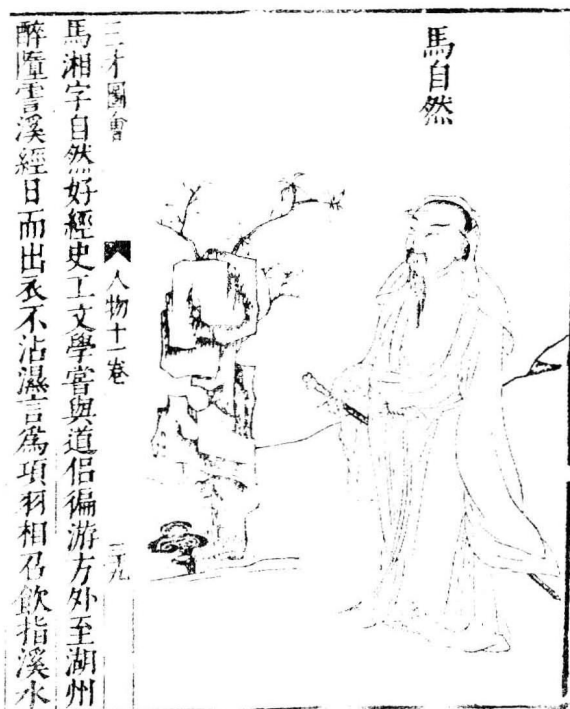 馬自然
三才圖會 人物十一卷 三十九
馬湘字自然好經史工文學嘗與道侣徧游方外至湖州
醉墮霅溪經日而出衣不沾濕言為項羽相召飲指溪水